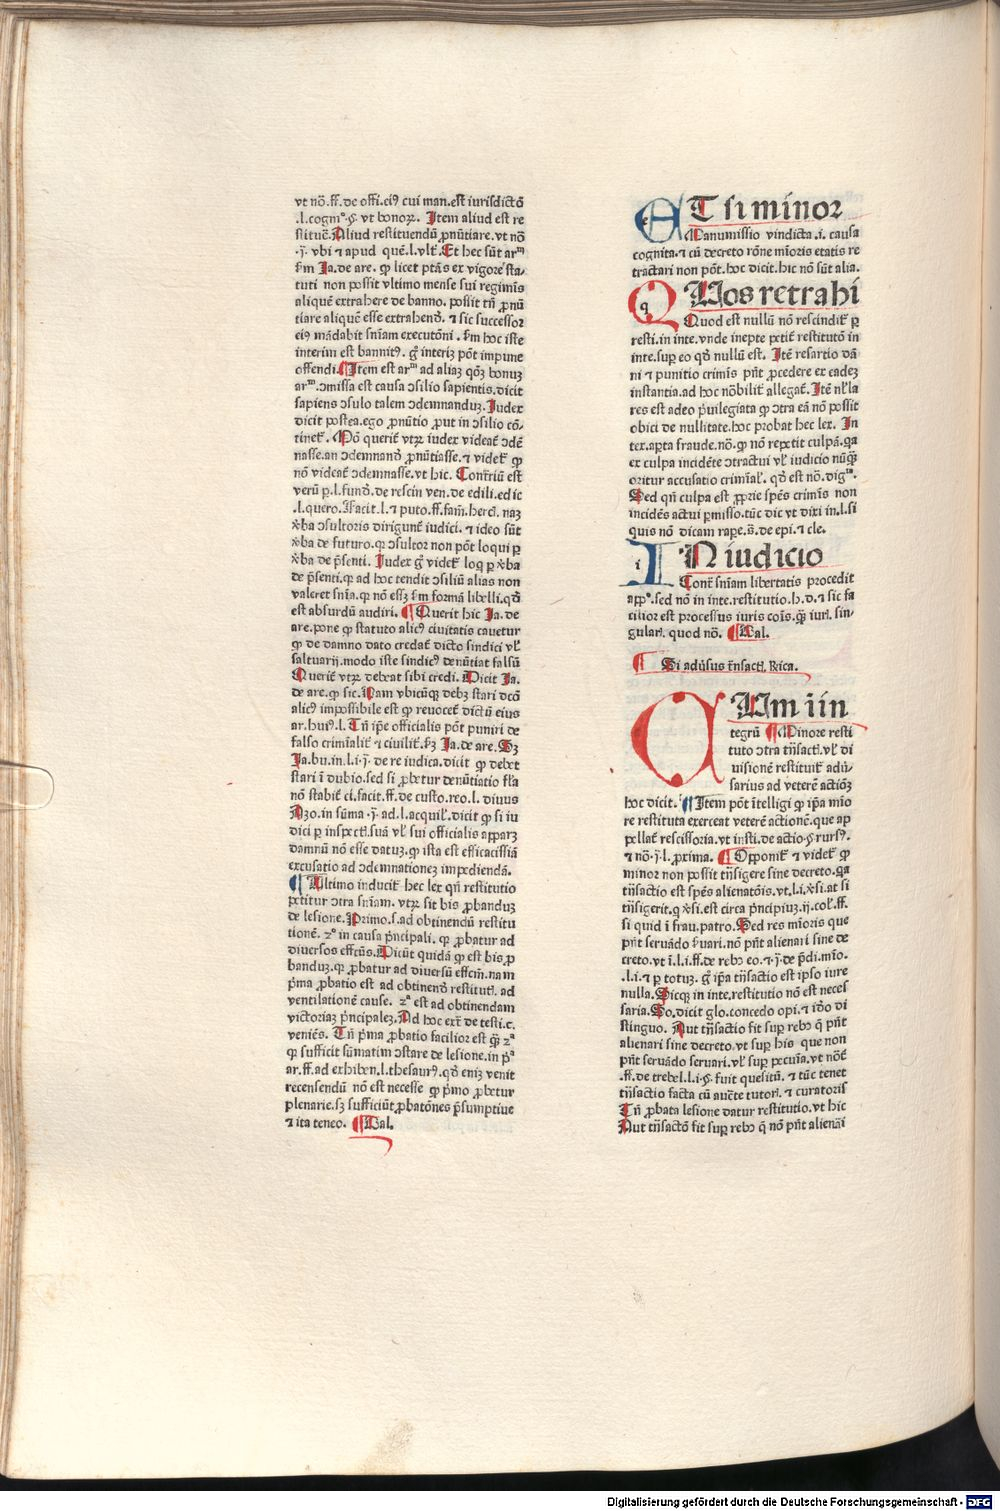 vt nō. ff. de offi. eiꝰ cui man. est iurisdictō
.l. cogmᵒ. ꝯ. vt bonoꝝ. Item aliud est re
stituē. Aliud restituendū ꝓnūtiare. vt nō
.ij. vbi ⁊ apud quē. l. vlt̄. Et hec sūt arᵐ
ẜm Ja. de are. ꝙ licet ptās ex vigore sta-
tuti non possit vltimo mense sui regimīs
aliquē extrahere de banno. possit tn̄ ꝓnū
tiare aliquē esse extrahendū. ⁊ sic successor
eiꝰ mādabit sn̄iam executōni. ẜm hoc iste
interim est bannitꝰ. gͥ interiꝫ pōt impune
offendi. ¶ Item est arᵐ ad aliaꝫ qōꝫ bonuꝫ
arᵐ. ꝯmissa est causa ꝯsilio sapientis. dicit
sapiens ꝯsulo talem ꝯdemnanduꝫ. Iudex
dicit postea. ego ꝓnūtio ꝓut in ꝯsilio cō-
tinet̄. Mō querit̄ vtꝝ iudex videat̄ ꝯdē
nasse. an ꝯdemnandū ꝓnūtiasse. ⁊ videt̄ ꝙ
nō videat̄ ꝯdemnasse. vt hic. Contrariū est
verū ꝑ. l. fundū. de rescin ven. de edili. ed ic
.l. quero. Facit. l. ⁊ puto. ff. fam̄. herci. naꝫ
v̄ba ꝯsultoris dirigunt̄ iudici. ⁊ ideo sūt
v̄ba de futuro. qꝛ ꝯsultor non pōt loqui ꝑ
v̄ba de p̄senti. Iudex gͥ videt̄ loq̄ ꝑ v̄ba
de p̄senti. qꝛ ad hoc tendit ꝯsiliū alias non
valeret sn̄ia. qꝛ nō esset ẜm formā libelli. qd̄
est absurdū audiri. ¶ Querit hic Ja. de
are. pone ꝙ statuto alicꝰ ciuitatis cauetur
ꝙ de damno dato credat̄ dicto sindici vl̓
saltuarij. modo iste sindicꝰ denūtiat falsū
Querit̄ vtꝝ debeat sibi credi. Dicit Ja.
de are. ꝙ sic. Nam vbicūqꝫ debꝫ stari dcō
alicꝰ impossibile est ꝙ reuocet̄ dictū eius
ar. huiꝰ. l. Tn̄ ip̄e officialis pōt puniri de
falso criminalit̄ ⁊ ciuilit̄. ẜꝫ Ja. de are. Sꝫ
Ja. bu. in. l. i. ij. de re iudica. dicit ꝙ debet
stari ī dubio. sed si ꝓbetur denūtiatio fl̄a
nō stabit̄ ei. facit. ff. de custo. reo. l. diuus
Azo. in sūma. ij. ad. l. acquil̄. dicit ꝙ si iu
dici ꝑ inspectī. suā vl̓ sui officialis apparꝫ
damnū nō esse datuꝫ. ꝙ ista est efficacissiā
excusatio ad ꝯdemnationeꝫ impediendā.
¶ Ultimo inducit̄ hec lex qn̄ restitutio
petitur ꝯtra sn̄iam. vtꝝ sit bis ꝓbanduꝫ
de lesione. Primo. s. ad obtinendū restitu
tionē. 2ᵒ in causa p̄ncipali. qꝛ ꝓbatur ad
diuersos effcūs. Dicūt quidā ꝙ est bis ꝓ
banduꝫ. qꝛ ꝓbatur ad diuersū effcm̄. nam
p̄ma ꝓbatio est ad obtinendū restituti. ad
ventilationē cause. 2ᵃ est ad obtinendam
victoriaꝫ p̄ncipaleꝫ. Ad hoc extͣ de testi. c.
veniēs. Tn̄ p̄ma ꝓbatio facilior est qᷓꝫ 2ᵃ
qꝛ sufficit sūmatim ꝯstare de lesione. in pͣ
ar. ff. ad exhiben. l. thesaurꝰ. qd̄ eniꝫ venit
recensendū nō est necesse ꝙ p̄mo ꝓbetur
plenarie. sꝫ sufficiūt ꝓbatōnes p̄sumptiue
⁊ ita teneo. ¶ Bal.
ET si minor
Manumissio vindicta. i. causa
cognita. ⁊ cū decreto rōne mīoris etatis re
tractari non pōt. hoc dicit. hic nō sūt alia.
QUos retrahi
Quod est nullū nō rescindit̄ ꝑ
resti. in inte. vnde inepte petit̄ restitutō in
inte. suꝑ eo qd̄ nullū est. Itē resartio dā
ni ⁊ punitio crimīs pn̄t ꝓcedere ex eadeꝫ
instantia. ad hoc nōbilit̄ allegat̄. Itē nl̓la
res est adeo p̄uilegiata ꝙ ꝯtra eā nō possit
obici de nullitate. hoc probat hec lex. In
tex. aꝑta fraude. nō. ꝙ nō repetit culpā. qꝛ
ex culpa incidēte ꝯtractui vl̓ iudicio nūqᷓꝫ
oritur accusatio crimīal̓. qd̄ est nō. digᵐ.
Sed qn̄ culpa est ꝓprie spēs crimīs non
incidēs actui ꝑmisso. tūc dic vt dixi in. l. si
quis nō dicam rapere. s̄. de epi. ⁊ cle.
IN iudicio
Contͣ sn̄iam libertatis procedit
appᵒ. sed nō in inte. restitutio. h. d. ⁊ sic fa
cilior est processus iuris cōis. qᷓꝫ iuri. sin-
gulari. quod nō. ¶ Bal.
¶ Si aduersus trn̄sacti. Rica.
QUm iin
tegrū ¶ Minore resti
tuto ꝯtra trn̄sacti. vl̓ di
uisionē restituit̄ adū-
sarius ad veterē actiōꝫ
hoc dicit. ¶ Item pōt ītelligi ꝙ ip̄a mīo
re restituta exerceat veterē actionē. que ap
pellat̄ rescissoria. vt insti. de actio. ꝯ rursꝰ.
⁊ nō. ij. l. proxima. ¶ Opponit̄ ⁊ videt̄ ꝙ
minor non possit trn̄sigere sine decreto. qꝛ
trn̄sactio est spēs alienatōis. vt. l. i. v̄si. at si
trn̄sigerit. q̄ v̄si. est circa p̄ncipiuꝫ. ij. col̓. ff.
si quid ī frau. patro. Sed res mīoris que
pn̄t seruādo ẜuari. nō pn̄t alienari sine de
creto. vt ī. l. i. ff. de rebꝰ eo. ⁊. ij. de p̄di. mīo.
.l. i. ⁊ ꝑ totuꝫ. gͥ ip̄a trn̄sactio est ipso iure
nulla. Sicqꝫ in inte. restitutio nō est neces
saria. So. dicit glo. concedo opi. ⁊ iō di
stinguo. Aut trn̄sactio fit suꝑ rebꝰ q̄ pn̄t
alienari sine decreto. vt suꝑ his que non
pn̄t seruādo seruari. vl̓ suꝑ pecūia. vt nōt̄
.ff. de trebel. l. i. ꝯ. fuit quesitū. ⁊ tūc tenet
trn̄sactio facta cū aucte tutori. ⁊ curatoris
Tn̄ ꝓbata lesione datur restitutio. vt hic
Aut trn̄sactō fit suꝑ rebꝰ q̄ nō pn̄t alienāi
Digitalisierung gefördert durch die Deutsche Forschungsgemeinschaft - DFG